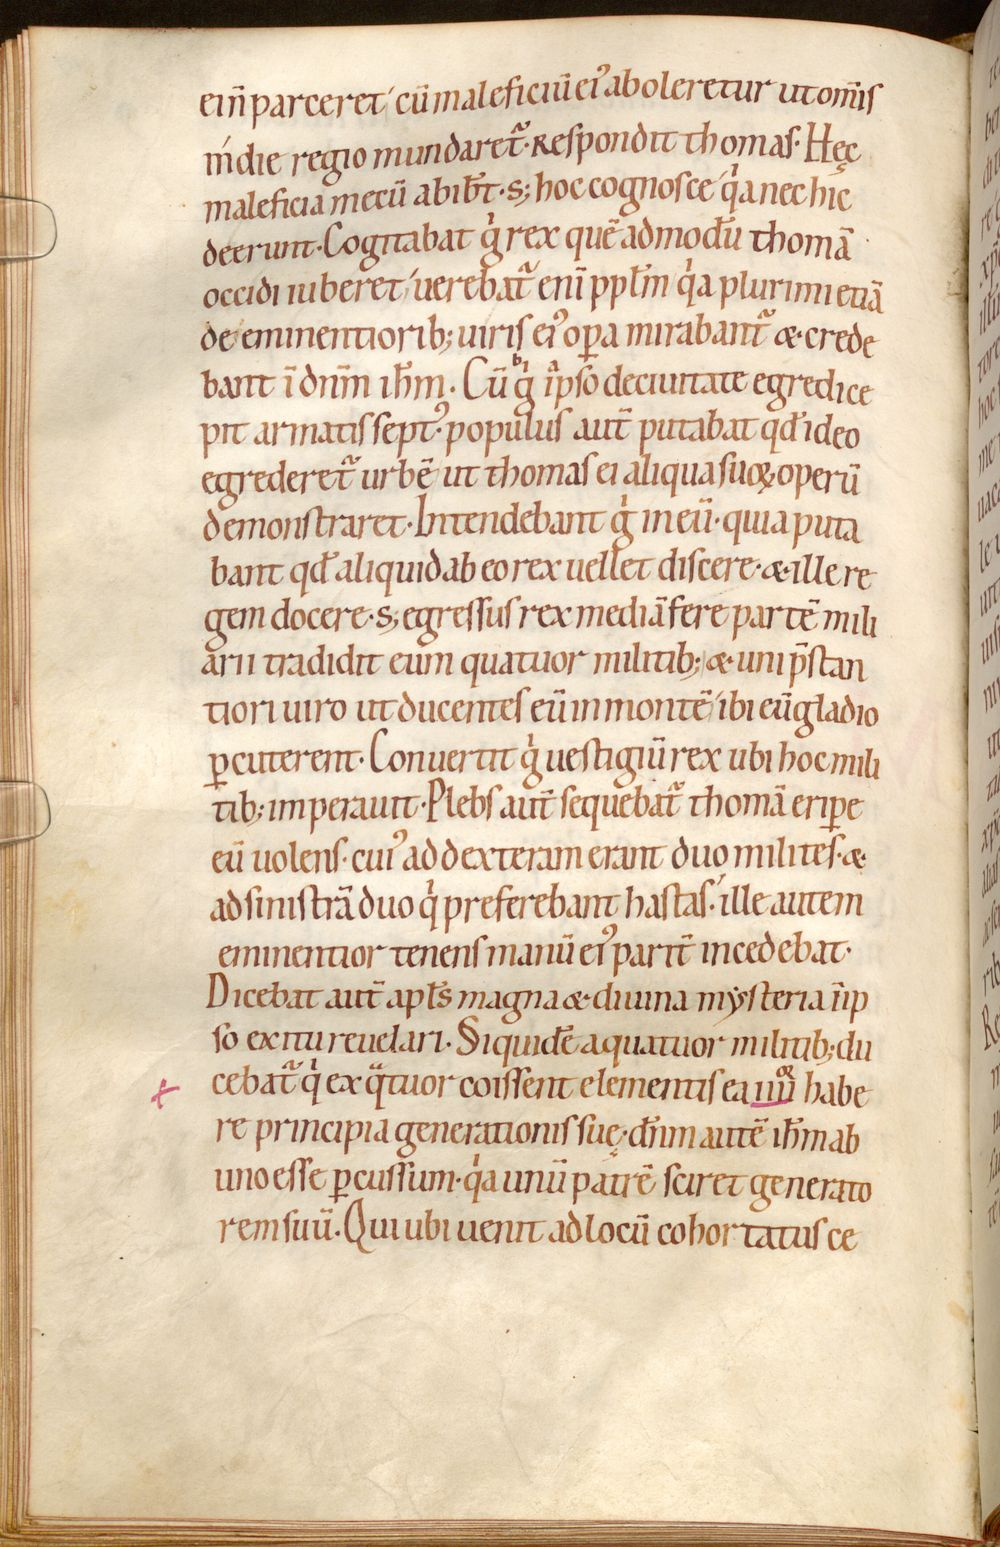 ein̄ parceret cū maleficiū ei᾽ aboleretur ut om̄is
in die regio mundaret᷑. Respondit thomas. Hęc
maleficia mecū abibt̄. s; hoc cognosce qͥa nec hic
deerunt. Cogitabat gͥ rex quē admodū thomā
occidi iuberet uerebat᷑ enī ppl̄m qͥa plurimi etiā
de eminentiorib; uiris ei᾽ oꝑa mirabant᷑ & crede
bant ī dn̄m ih̄m. Cū gͥ ip̄so de ciuitate egredi ce
pit armatis sept᾽. populus aut̄ putabat qd̄ ideo
egrederet᷑ urbē ut thomas ei aliqua suoꝝ operū
demonstraret. Intendebant gͥ in eū. quia puta
bant qd̄ aliquid ab eo rex uellet discere. & ille re
gem docere. s; egressus rex mediā fere partē mili
arii tradidit eum quatuor militib; & uni p̄stan
tiori uiro ut ducentes eū in montē ibi eū gladio
ꝑcuterent. Conuertit gͥ uestigiū rex ubi hoc mili
tib; imperauit. Plebs aut̄ sequebat᷑ thomā eriꝑe
eū uolens. cui᾽ ad dexteram erant duo milites. &
ad sinistrā duo qͥ preferebant hastas. ille autem
eminentior tenens manū ei᾽ parit̄ incedebat.
Dicebat aut̄ apl̄s magna & diuina mẏsteria īip
so exitu reuelari. Siquidē a quatuor militib; du
cebat᷑ qͥ ex qͣtuor coissent elementis ea uꝝ habe
re principia generationis suę. dn̄m autē ih̄m ab
uno esse ꝑcussum. qͥa unū patrē sciret generato
rem suū. Qui ubi uenit ad locū cohortatus ce